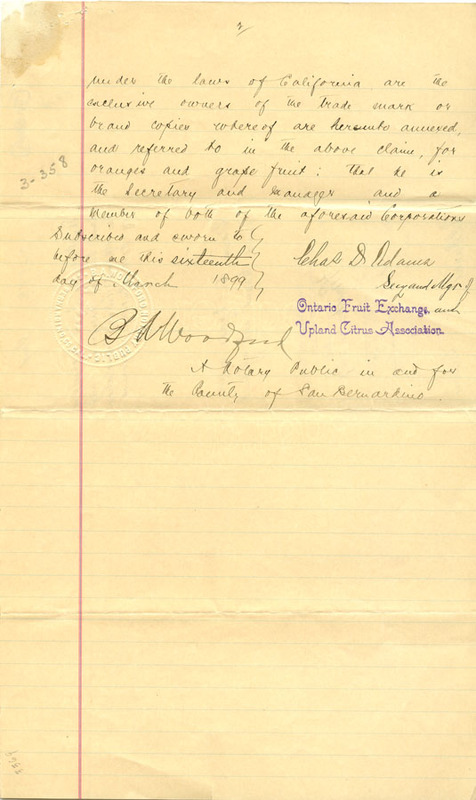 2
under the laws of California are the
exclusive owners of the trade mark or
brand copies whereof are hereunto annexed,
and referred to in the above claim, for
oranges and grape fruit: that he is
3-358
the Secretary and Manager and a
member of both of the aforesaid Corporations
Subscribed and sworn to
before me this sixteenth
day of March 1899
Chas D. Adams
Secy and Mgr of
Ontario Fruit Exchange, and
Upland Citrus Association.
B A Woodford
A Notary Public in and for
the County of San Bernardino.